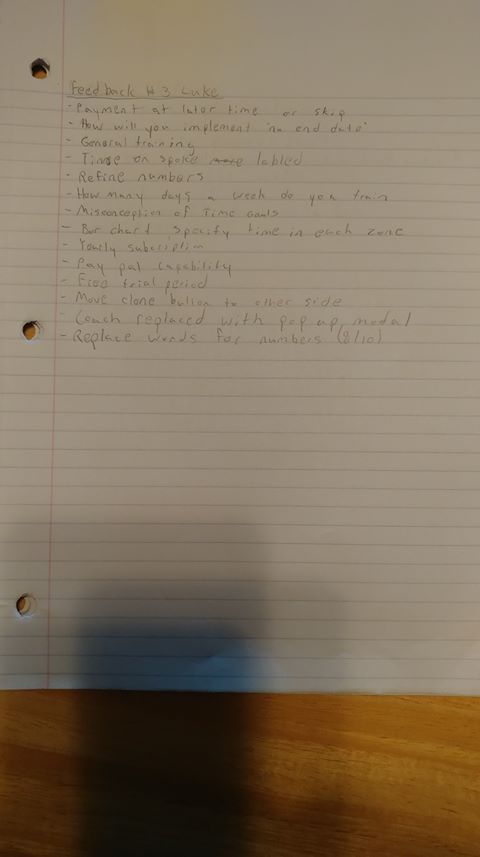 Feedback #3 Luke
- Payment at later time or skip
- How will you implement "no end date"
- General training
- Time on spoke labled
- Refine numbers
- How many days a week do you train
- Misconception of Time Goals
- Bar chart specify time in each zone
- Yearly subscription
- Pay pal capability
- Free trial period
- Move clone button to other side
- Coach replaced with pop up modal
- Replace words for numbers (8/10)